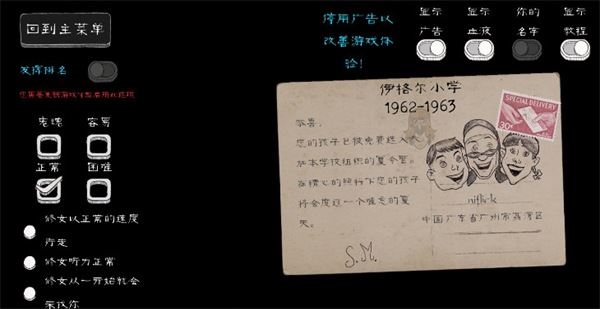 回到主菜单
停用广告以
改善游戏体
验!
显示
广告
显示
血液
你的
名字
显示
教程
发挥排名
鬼魂
容易
正常
困难
修女以正常的速度
行走
修女听力正常
修女从一开始机会
来找你
伊格尔小学
1962-1963
敬启,
您的孩子已被免费选入参
加本学校组织的夏令营。
在精心的照料下您的孩子
将会度过一个难忘的夏
天。
S.M.
SPECIAL DELIVERY
30¢
中国广东省广州市荔湾区